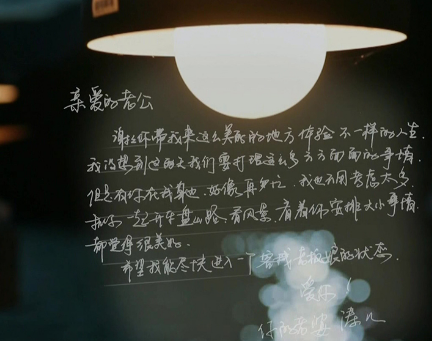 亲爱的老公
谢谢你带我来这么美丽的地方体验不一样的人生.
我没想到这两天我们要打理这么多方方面面的事情.
但是有你在我身边,好像再多,我也不用考虑太多.
和你一起开车盘山路,看风景,看着你安排大小事情
都觉得很美好.
希望我能尽快进入一个客栈老板娘的状态.
爱你!
你的老婆